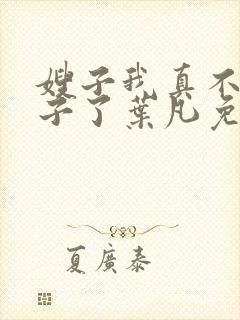 嫂子我真不
子了葉凡免
夏廣泰